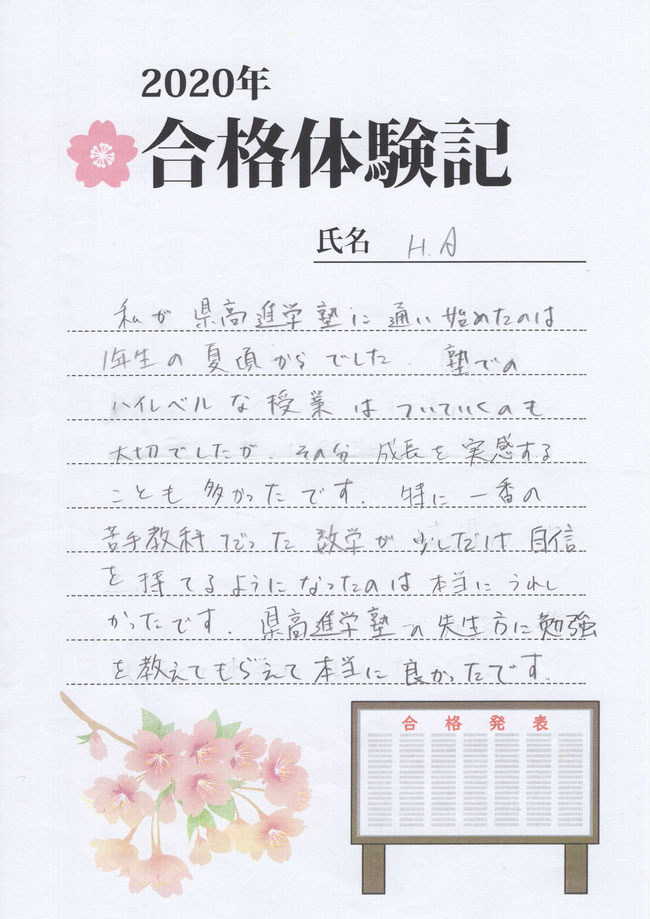 2020年
合格体験記
氏名 H.A
私が県高進学塾に通い始めたのは
1年生の夏頃からでした。塾での
ハイレベルな授業はついていくのも
大切でしたが、その分成長を実感する
ことも多かったです。特に一番の
苦手教科だった数学が少しだけ自信
を持てるようになったのは本当にうれし
かったです。県高進学塾の先生方に勉強
を教えてもらえて本当に良かったです。
合格発表